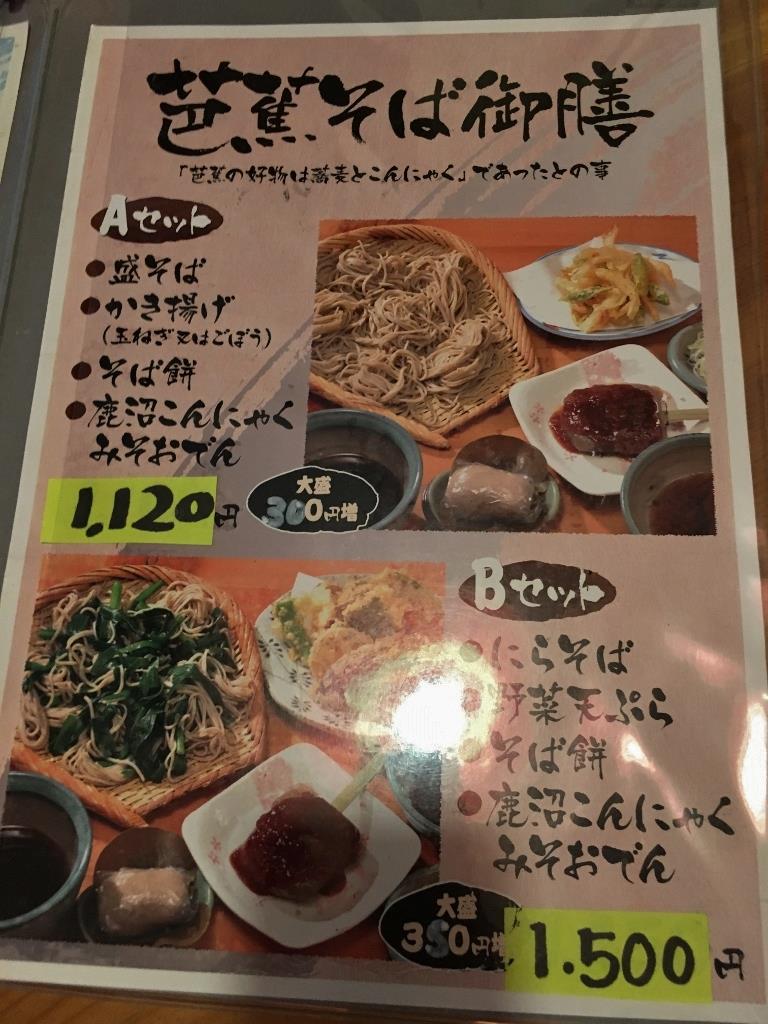 芭蕉そば御膳
「芭蕉の好物は蕎麦とこんにゃく」であったとの事
Aセット
●盛そば
●かき揚げ
(玉ねぎ又はごぼう)
●そば餅
●鹿沼こんにゃく
みそおでん
1,120円
大盛
300円増
Bセット
●にらそば
●野菜天ぷら
●そば餅
●鹿沼こんにゃく
みそおでん
大盛
350円増
1.500円